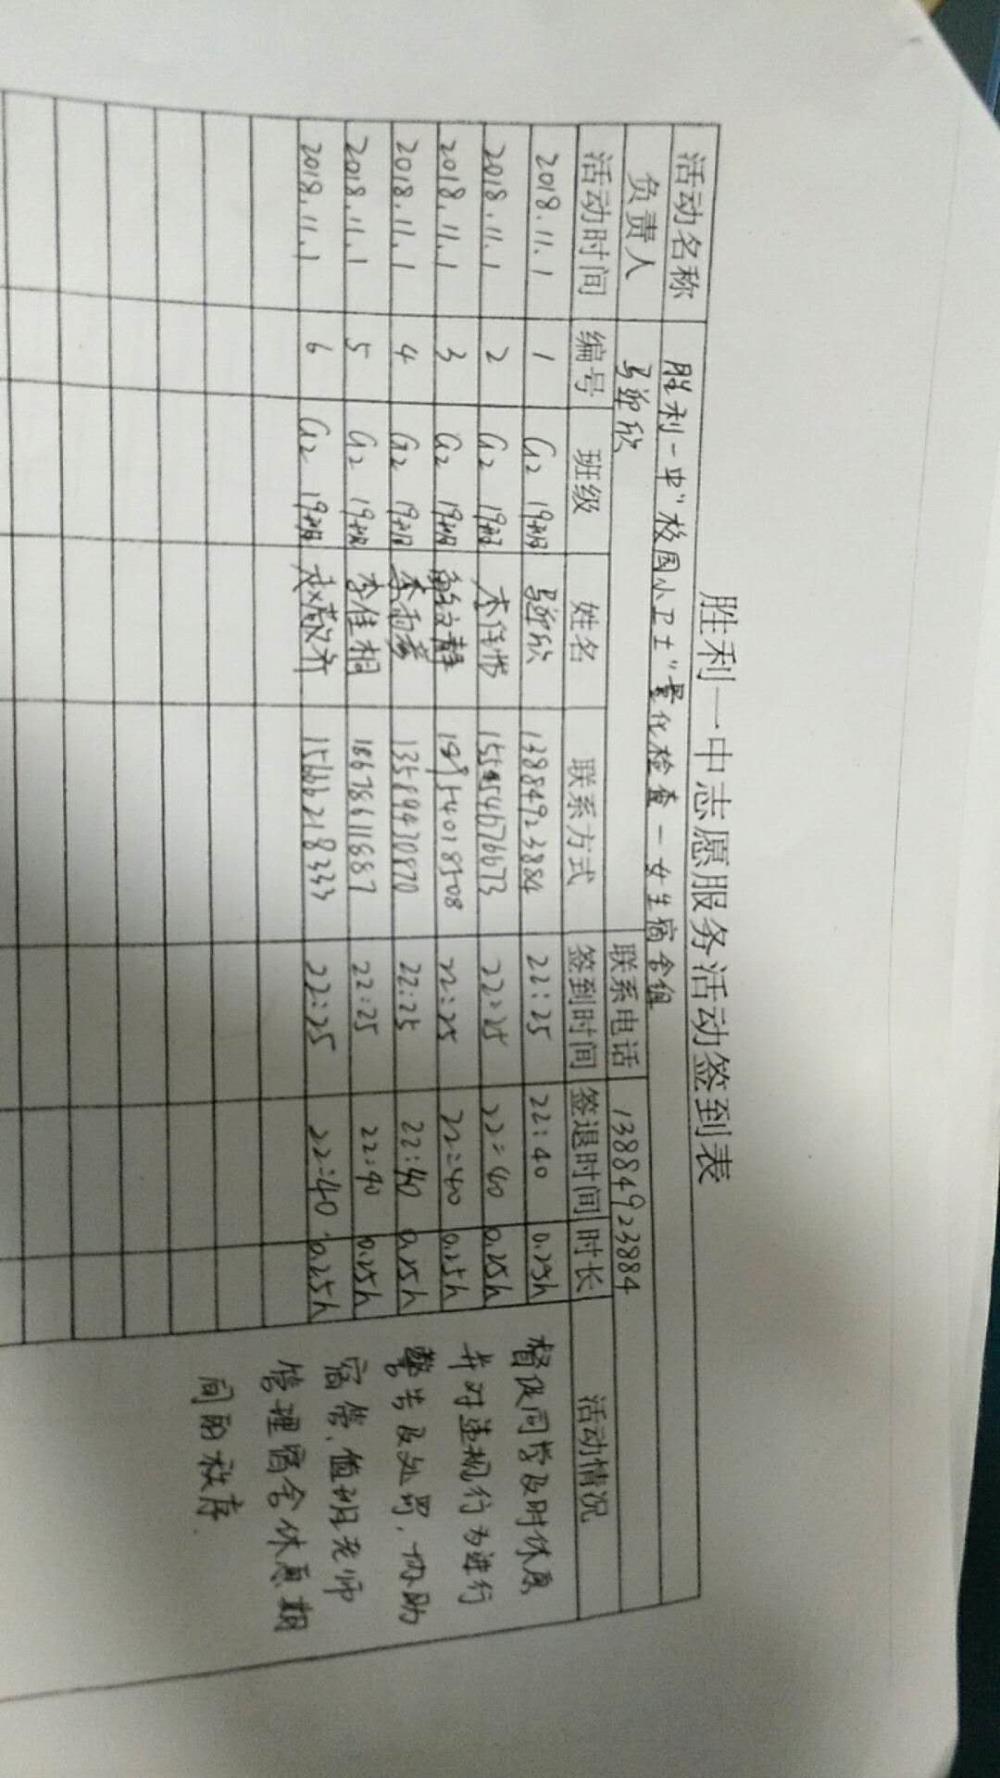 胜利一中志愿服务活动签到表
活动名称 胜利一中"校园小卫士"量化检查-女生宿舍组
负责人 联系电话 13884923884
活动时间 编号 班级 姓名 联系方式 签到时间 签退时间 时长 活动情况
2018.11.1 1 G2 19班 13884923884 22:25 22:40 0.25h
2018.11.1 2 G2 19班 22:25 22:40 0.25h
2018.11.1 3 G2 19班 22:25 22:40 0.25h
2018.11.1 4 G2 19班 李雨蓁 13589430870 22:25 22:40 0.25h
2018.11.1 5 G2 19班 李佳桐 18678611687 22:25 22:40 0.25h
2018.11.1 6 G2 19班 15666218333 22:25 22:40 0.25h
督促同学及时休息
并对违规行为进行
警告及处罚,协助
宿管、值班老师
管理宿舍休息期
间的秩序.